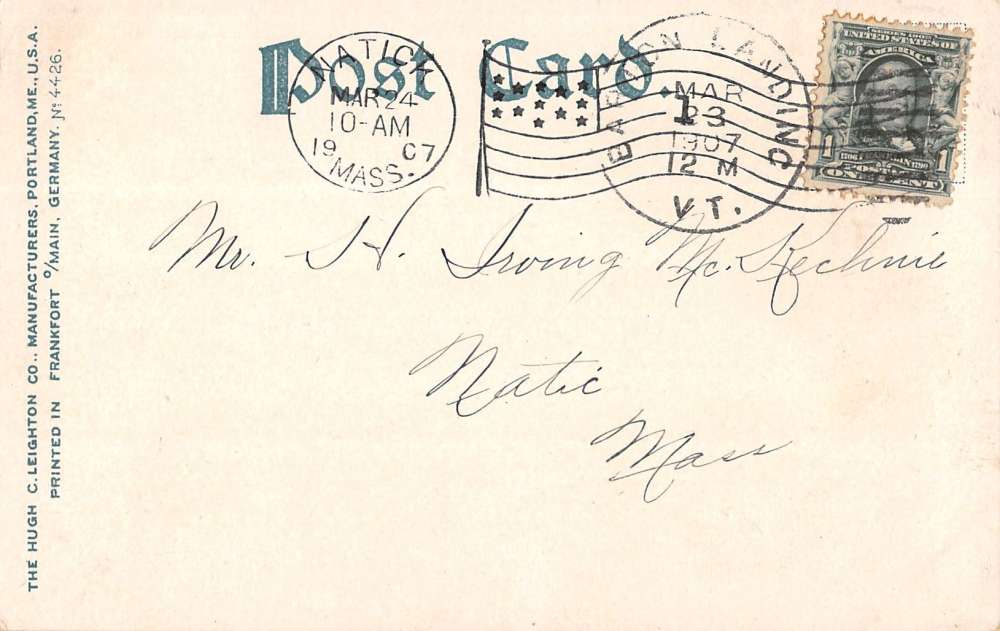 Post Card.
NATICK
MAR 24
10-AM
19 07
MASS.
BARTON LANDING
MAR
23
1907
12 M
VT.
1
SERIES 1902
UNITED STATES OF
AMERICA
1706 FRANKLIN 1790
1 POSTAGE 1
ONE CENT
Mr. H. Irving McKechnie
Natic
Mass
THE HUGH C. LEIGHTON CO., MANUFACTURERS, PORTLAND, ME., U.S.A.
PRINTED IN FRANKFORT o/MAIN, GERMANY. No 4426.